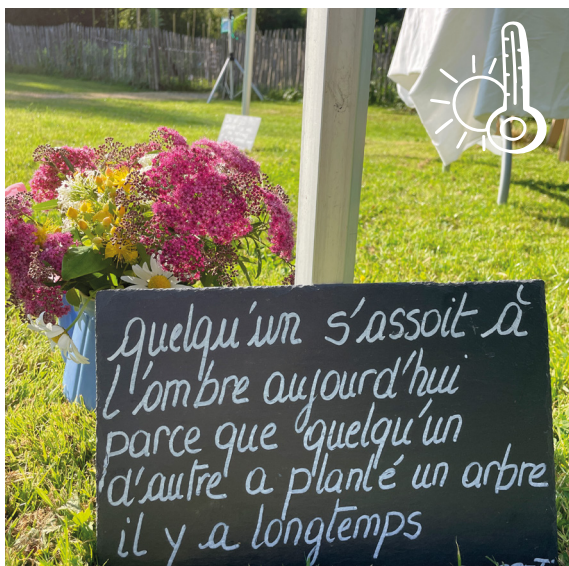 quelqu'un s'assoit à
l'ombre aujourd'hui
parce que quelqu'un
d'autre a planté un arbre
il y a longtemps